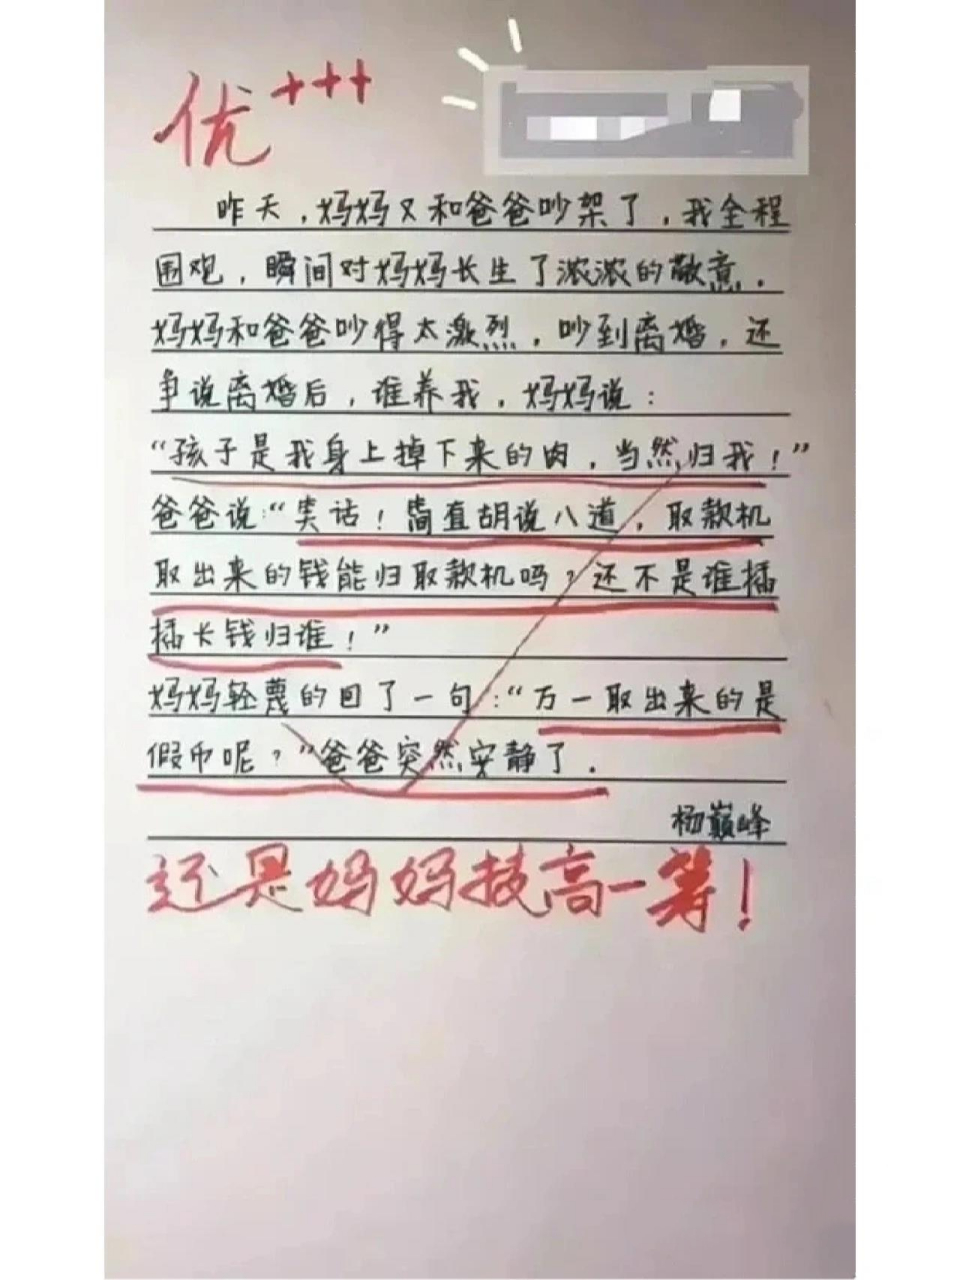 优+++
昨天，妈妈又和爸爸吵架了，我全程
围观，瞬间对妈妈长生了浓浓的敬意。
妈妈和爸爸吵得太激烈，吵到离婚，还
争说离婚后，谁养我，妈妈说：
“孩子是我身上掉下来的肉，当然归我！”
爸爸说：“笑话！简直胡说八道，取款机
取出来的钱能归取款机吗？还不是谁插
插长钱归谁！”
妈妈轻蔑的回了一句：“万一取出来的是
假币呢？”爸爸突然安静了．
杨巅峰
还是妈妈技高一筹！